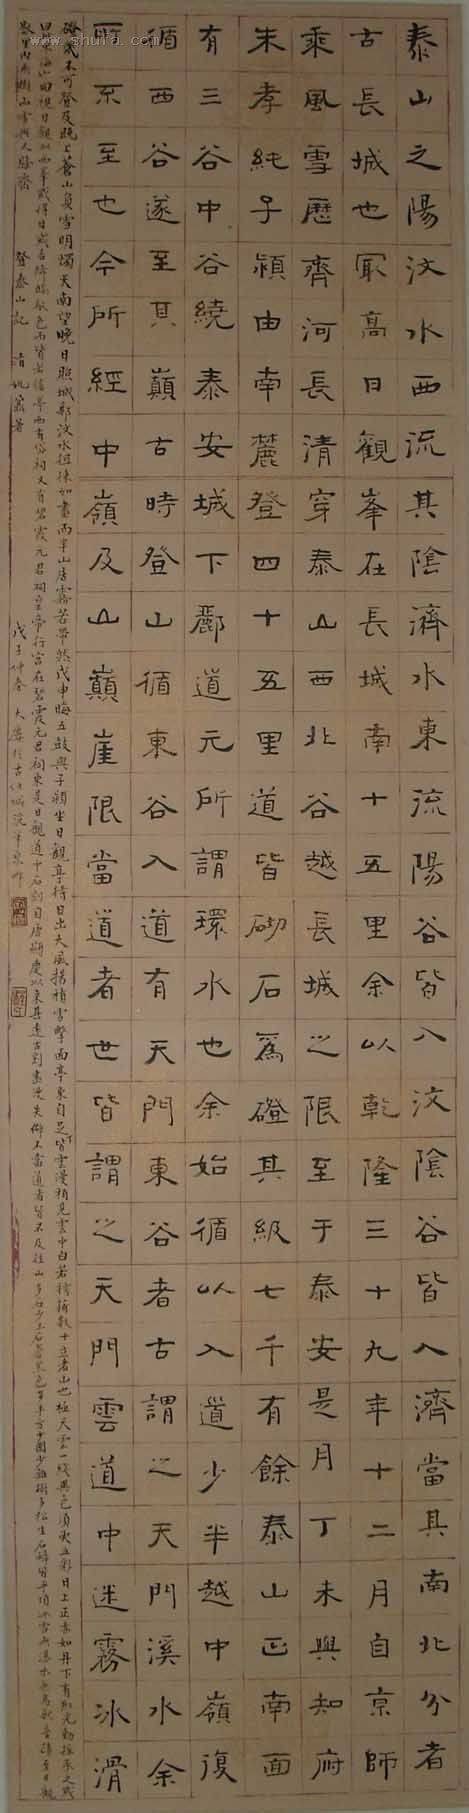 泰山之陽汶水西流其陰濟水東流陽谷皆入汶陰谷皆入濟當其南北分者
古長城也冣高日觀峯在長城南十五里余以乾隆三十九年十二月自京師
乘風雪歷齊河長清穿泰山西北谷越長城之限至于泰安是月丁未與知府
朱孝純子潁由南麓登四十五里道皆砌石為磴其級七千有餘泰山正南面
有三谷中谷繞泰安城下酈道元所謂環水也余始循以入道少半越中嶺復
循西谷遂至其巔古時登山循東谷入道有天門東谷者古謂之天門溪水余
所不至也今所經中嶺及山巔崖限當道者世皆謂之天門雲道中迷霧冰滑
磴幾不可登及既上蒼山負雪明燭天南望晚日照城郭汶水徂徠如畫而半山居霧若帶然戊申晦五鼓與子潁坐日觀亭待日出大風揚積雪擊面亭東自足下皆雲漫稍見雲中白若摴蒱數十立者山也極天雲一線異色須臾五彩日上正赤如丹下有紅光動搖承之或
曰此東海也回視日觀以西峯或得日或否絳皜駁色而皆若僂亭西有岱祠又有碧霞元君祠皇帝行宮在碧霞元君祠東是日觀道中石刻自唐顯慶以來其遠古刻盡漫失僻不當道者皆不及往山多石少土石蒼黑色多平方少圜少雜樹多松生石罅皆平頂冰雪無瀑水無鳥獸音跡至日觀
數里內無樹而雪與人膝齊 登泰山記 清姚鼐著 戊子仲春
www.shufa.com